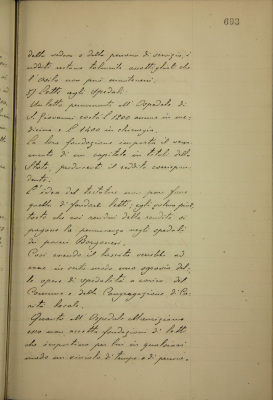 693
della vedova e delle persone di servizio, i
redditi restano talmente assottigliati che
l'asilo non può mantenersi.
Letti agli spedali.
Un letto permanente all'Ospedale di
S. Giovanni costa L. 1200 annue in me-
dicina e L. 1400 in chirurgia.
La loro fondazione importa il versa-
mento di un capitale in titoli dello
Stato, producenti il reddito corrispon-
dente.
L'idea del testatore non pare fosse
quella di fondare letti; egli voleva piut-
tosto che coi residui delle rendite si
pagasse la permanenza negli spedali
di poveri
Così essendo il lascito verrebbe ad
essere in certo modo uno sgravio del-
le opere di spedalità a carico del
Comune e della Congregazione di Ca-
rità locale.
Quanto all'Ospedale Mauriziano
esso non accetta fondazioni di letti
che importino per lui un qualsiasi
vincolo di tempo e di